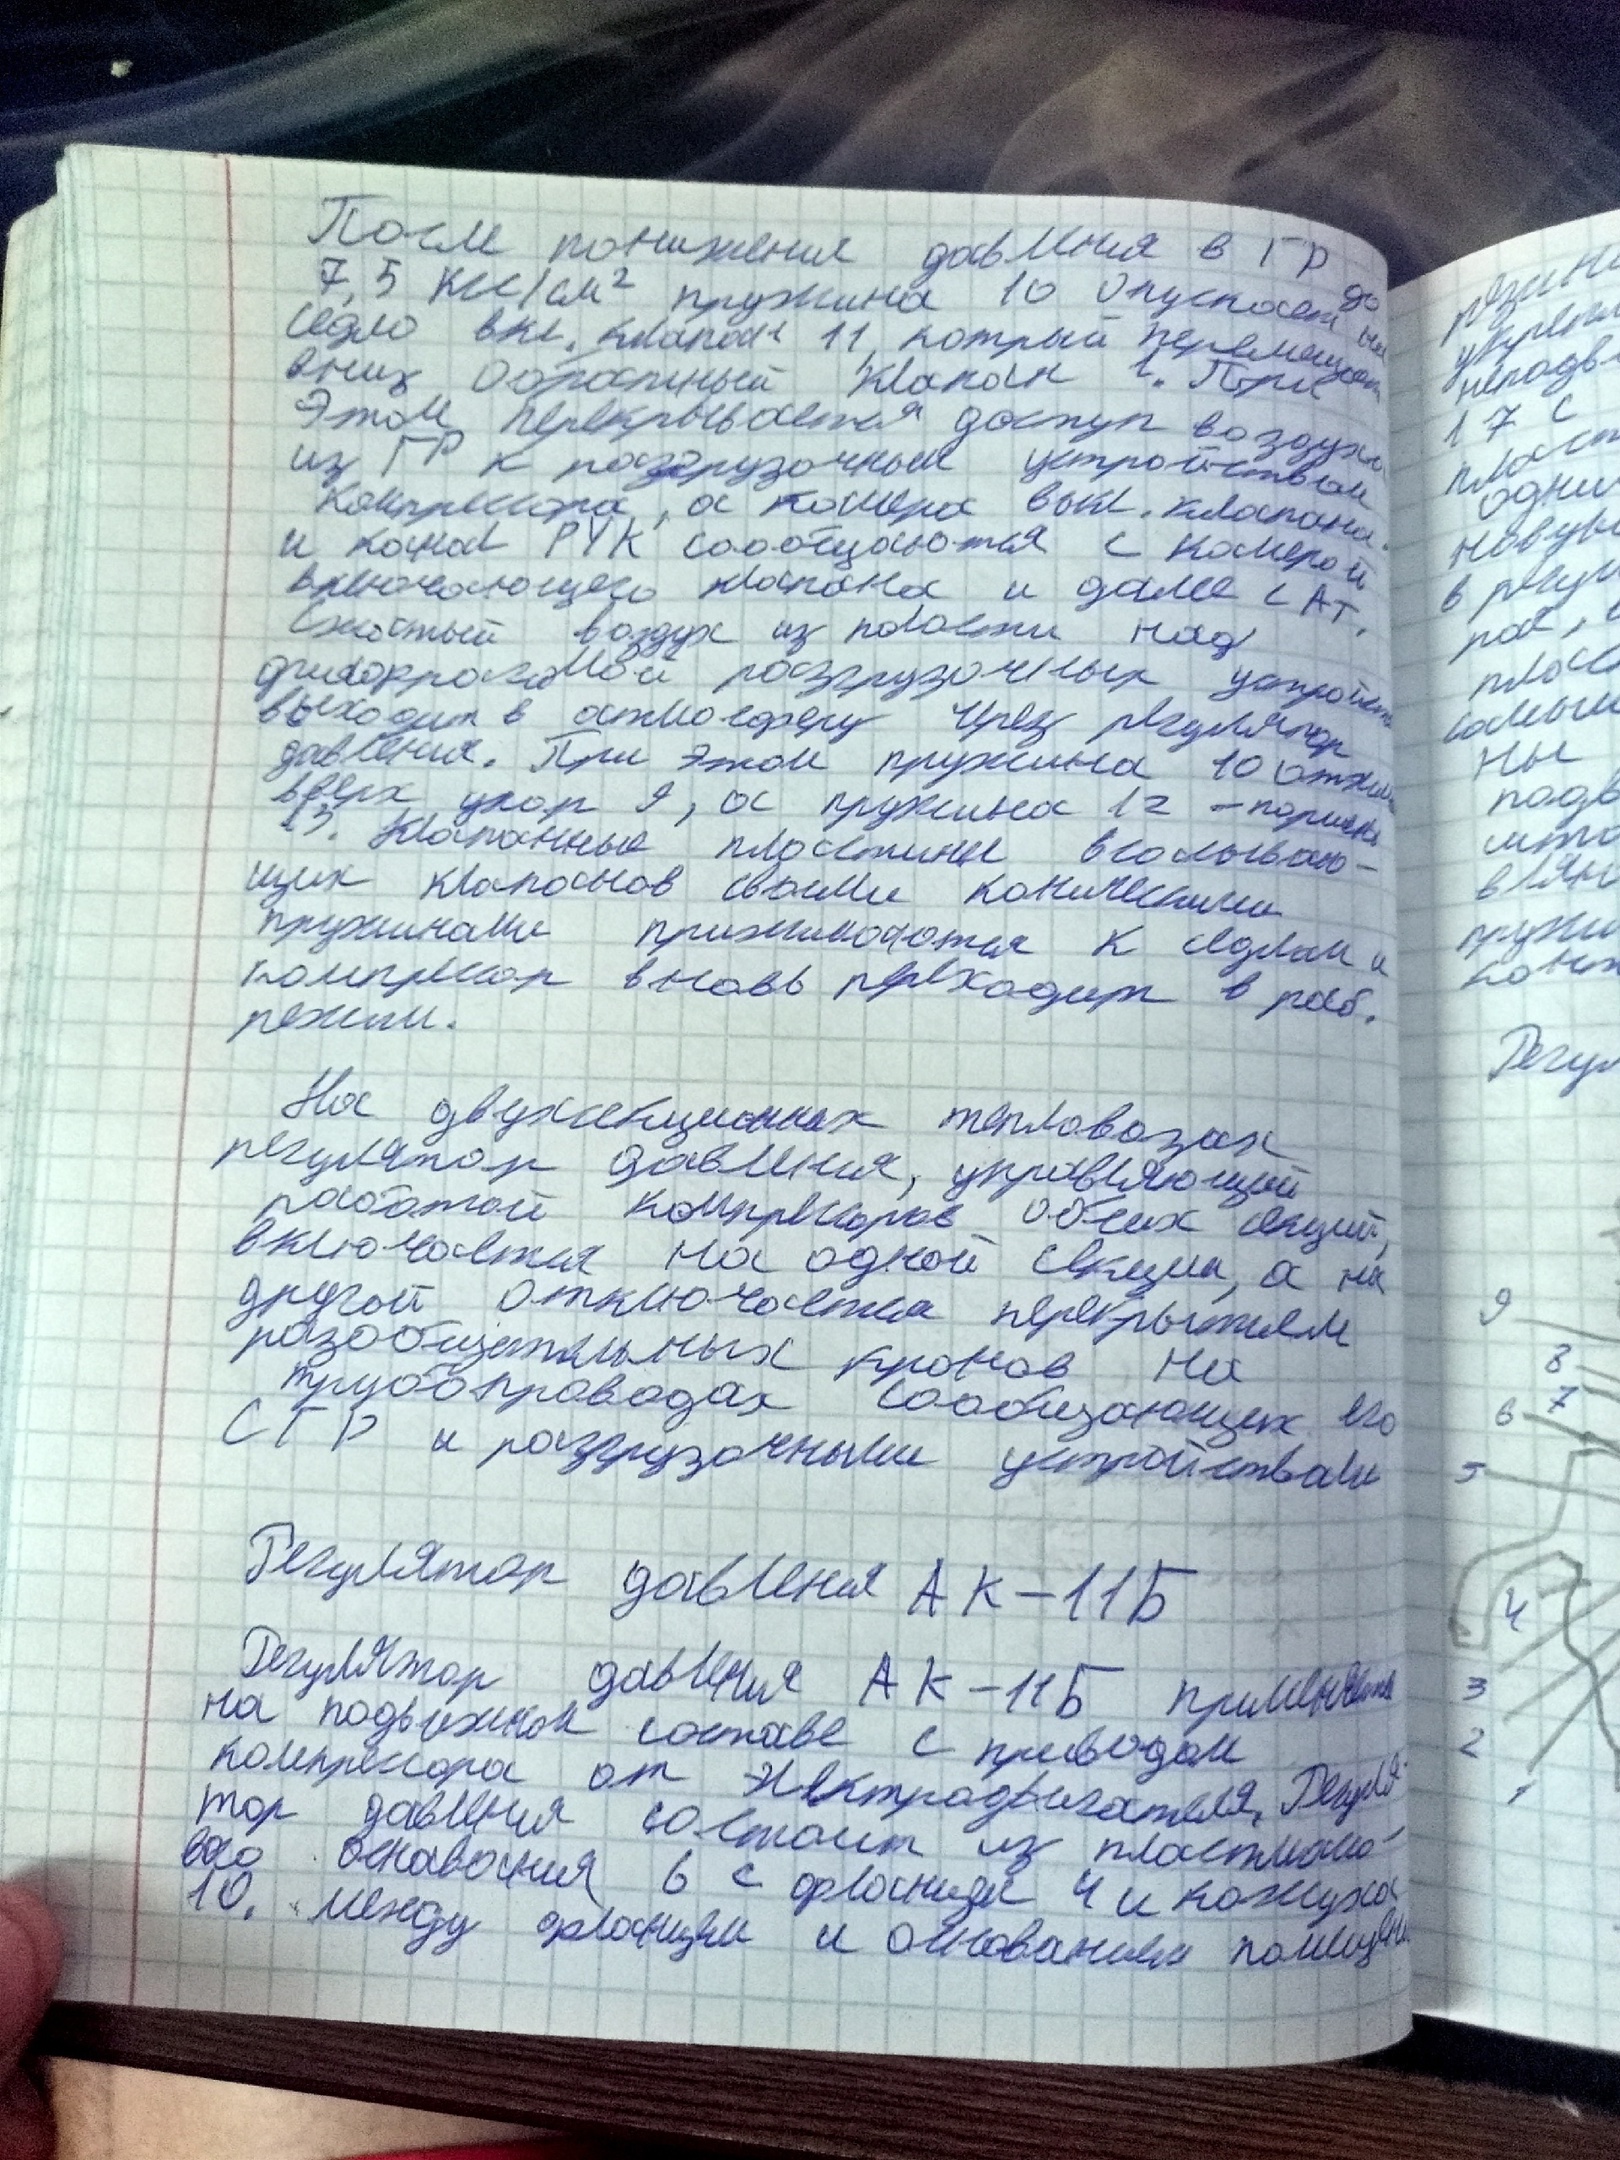 После понижения давления в ГР до
7,5 кгс/см² пружина 10 опускает на
седло вкл. клапан 11 котрый перемещает
вниз Обратный клапан 1. При
Этом перекрывается доступ воздуха
из ГР к разгрузочным устройствам
компрессора, а камера выкл. клапана
и канал РУК сообщаются с камерой
включающего клапана и далее с Ат.
Сжатый воздух из полости над
диафрагмой разгрузочных устройств
выходит в атмосферу через регулятор
давления. При этом пружина 10 отжим
вверх упор 9, а пружина 12 - поршень
13. Клапанные пластины всасываю-
щих клапанов своими коническими
пружинами прижимаются к седлам и
компрессор вновь переходит в раб.
режим.
На двухсекционных тепловозах
регулятор давления, управляющий
работой компрессоров обеих секций,
включается на одной секции, а на
другой отключается перекрытием
разобщительных кранов на
трубопроводах сообщающих его
С ГР и разгрузочными устройствами
Регулятор давления АК-11Б
Регулятор давления АК-11Б применяется
на подвижном составе с приводом
компрессора от электродвигателя. Регуля-
тор давления состоит из пластмассо-
вого основания 6 с фланцем 4 и кожуха
10. между фланцем и основанием помещен
резин
укрепл
неподв
17 с
пласт
одни
новую
в регул
плас
ны
подв
влян
пружи
конт
Регул
9
8
7
6
5
4
3
2
1